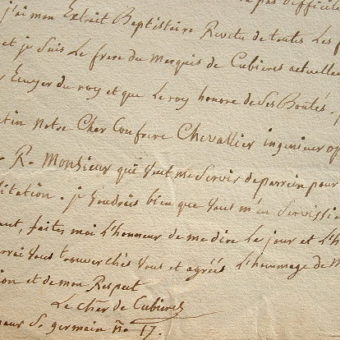 pas difficile
j'ai mon Extrait Baptistaire Revetu de toutes Les f
et je suis Le frere du Marquis de Cubieres actuelle
Ecuyer du roy et que Le roy honore de Ses Bontés.
notre Cher Confrere Chevallier ingenieur op
R. Monsieur qui veut me Servir de parrein pour
. je voudrois bien que vous m'en Servissie
faites moi L'honneur de me dire Le jour et L'h
vous trouver chés vous et agreés L'hommage de m
et de mon Respect
Le cher de Cubieres
St germain no 17.